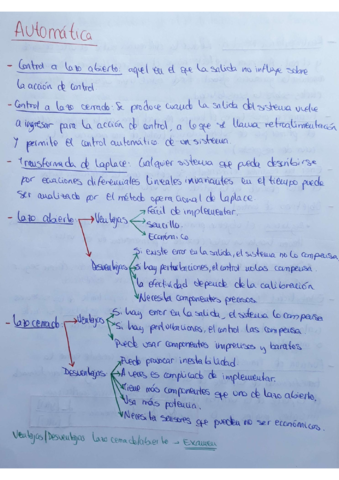 Automática
- Control a lazo abierto: aquel en el que la salida no influye sobre
la acción de control
- Control a lazo cerrado: Se produce cuando la salida del sistema vuelve
a ingresar para la acción de control, a lo que se llama retroalimentación
y permite el control automatico de un sistema
- Transformada de Laplace: Cualquier sistema que pueda describirse
por ecuaciones diferenciales lineales invariantes en el tiempo puede
ser analizado por el método operacional de Laplace
- Lazo abierto → Ventajas → Fácil de implementar.
→ Sencillo
→ Económico
Desventajas → Si existe error en la salida, el sistema no lo compensa
→ Si hay perturbaciones, el control no las compensa
→ La efectividad depende de la calibración
→ Necesita componentes precisos
- Lazo cerrado → Ventajas → Si hay error en la salida, el sistema lo compensa
→ Si hay perturbaciones, el control las compensa
→ Puede usar componentes imprecisos y baratos
Desventajas → Puede provocar inestabilidad.
→ A veces es complicado de implementar.
→ Tiene más componentes que uno de lazo abierto,
→ Usa más potencia.
→ Necesita sensores que pueden no ser económicos.
Ventajas/Desventajas lazo cerrado/abierto → Examen